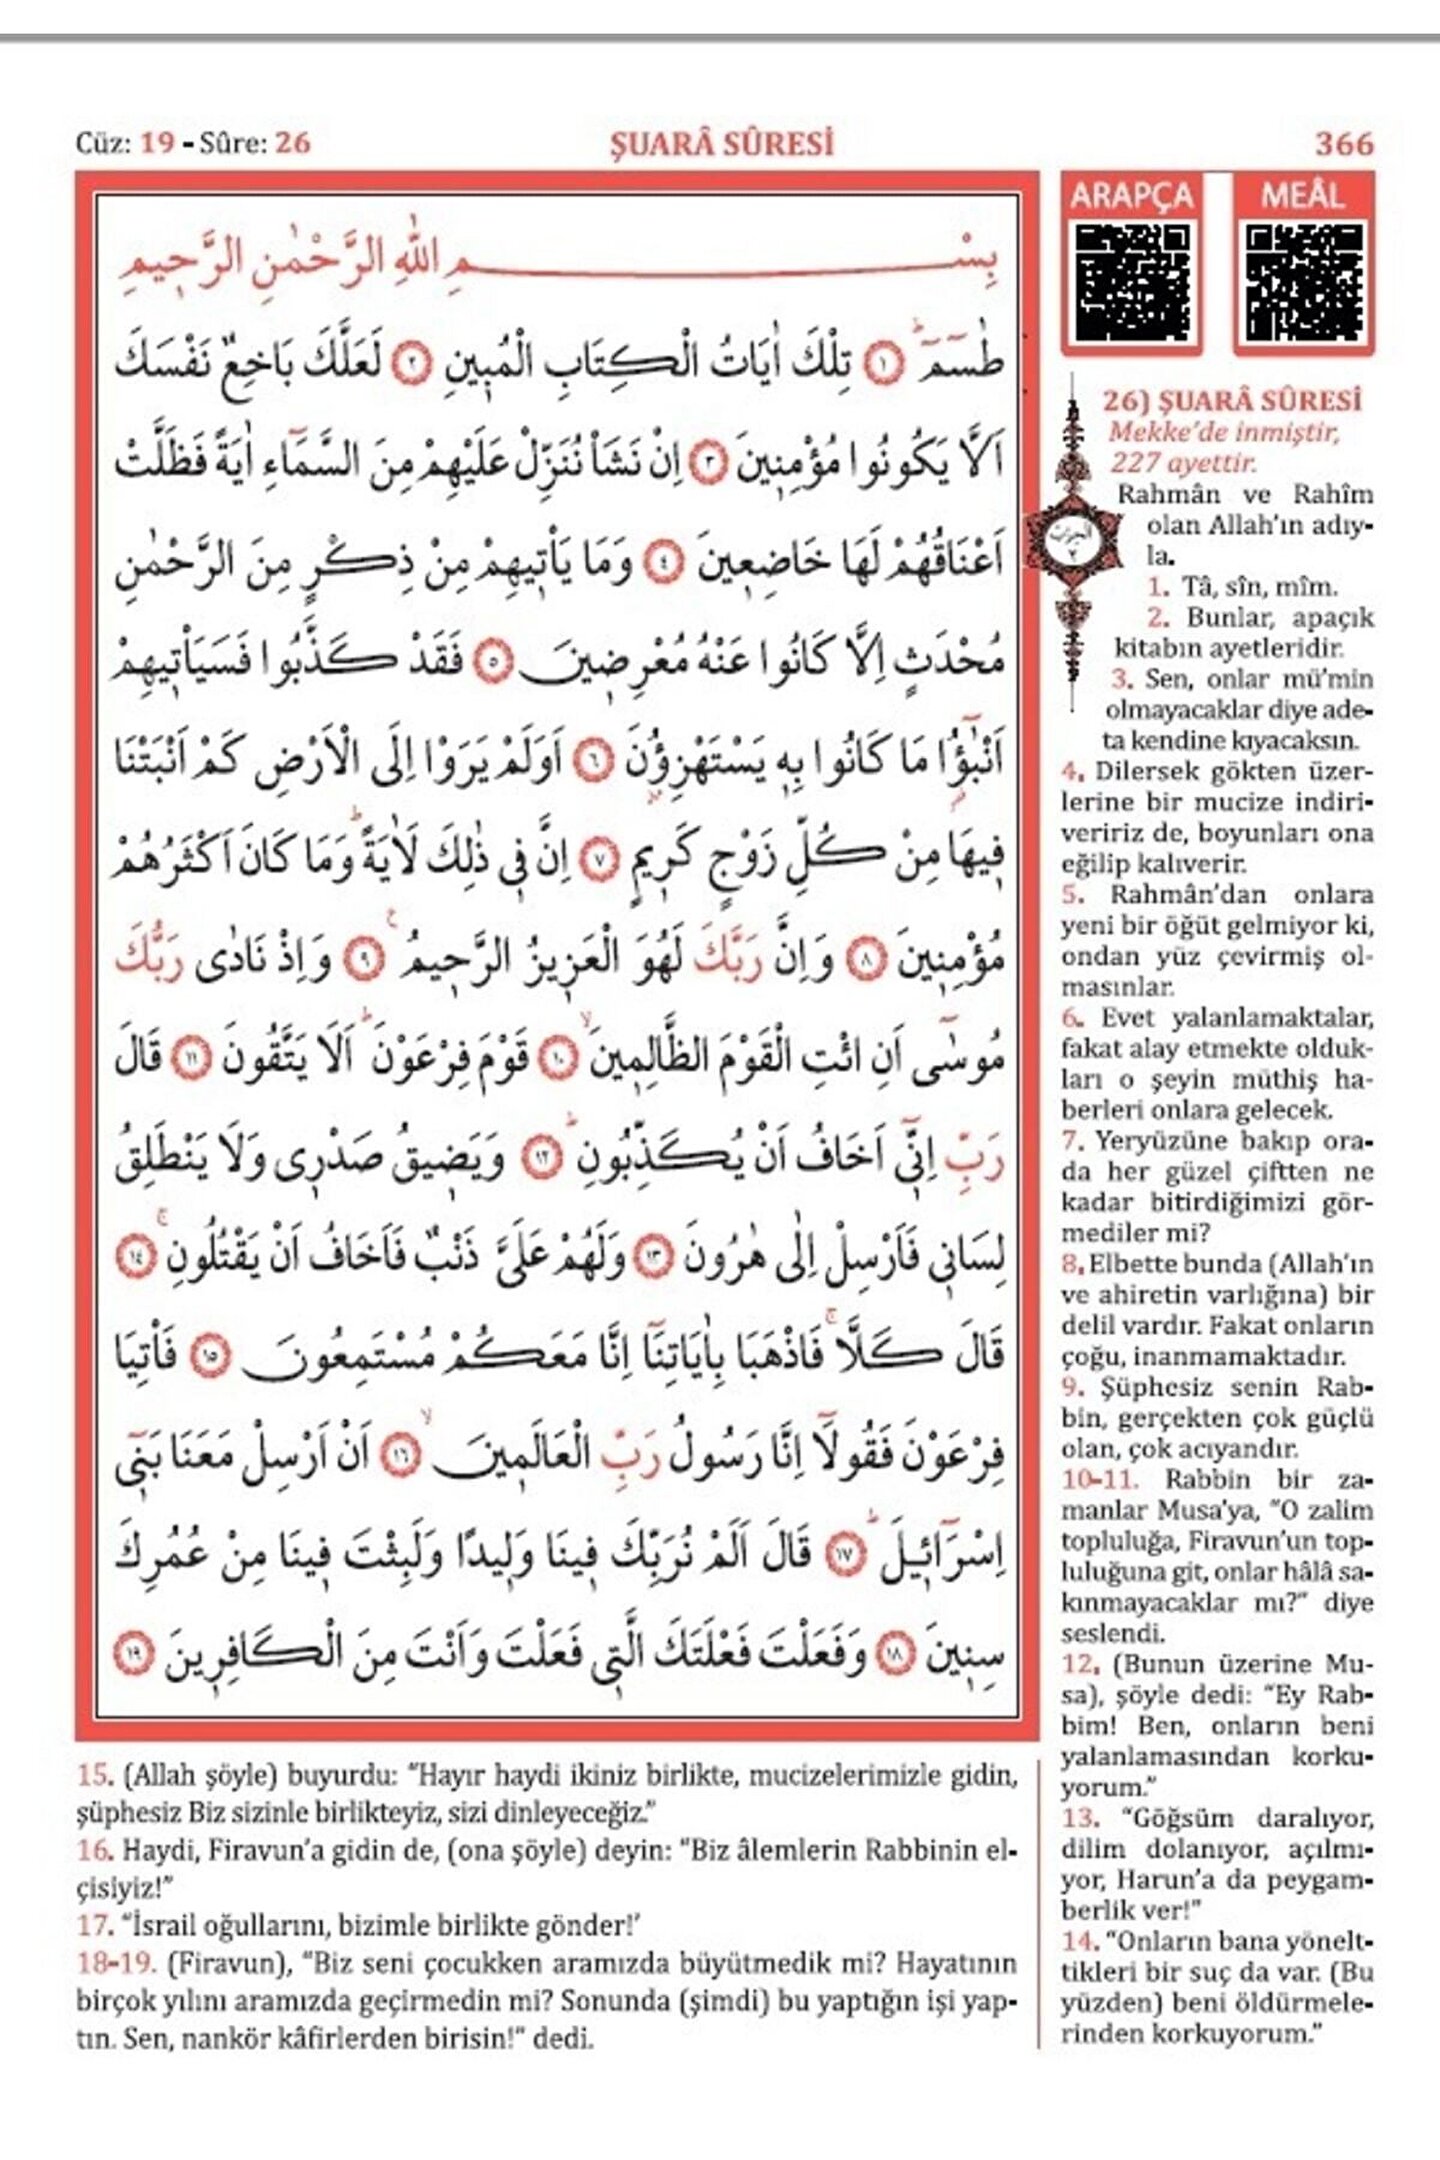 Cüz: 19 - Sûre: 26
ŞUARÂ SÛRESİ
366
بِسْمِ اللّٰهِ الرَّحْمٰنِ الرَّح۪يمِ
طٰسٓمٓۜ ﴿١﴾ تِلْكَ اٰيَاتُ الْكِتَابِ الْمُب۪ينِ ﴿٢﴾ لَعَلَّكَ بَاخِعٌ نَفْسَكَ
اَلَّا يَكُونُوا مُؤْمِن۪ينَ ﴿٣﴾ اِنْ نَشَأْ نُنَزِّلْ عَلَيْهِمْ مِنَ السَّمَٓاءِ اٰيَةً فَظَلَّتْ
اَعْنَاقُهُمْ لَهَا خَاضِع۪ينَ ﴿٤﴾ وَمَا يَأْت۪يهِمْ مِنْ ذِكْرٍ مِنَ الرَّحْمٰنِ
مُحْدَثٍ اِلَّا كَانُوا عَنْهُ مُعْرِض۪ينَ ﴿٥﴾ فَقَدْ كَذَّبُوا فَسَيَأْت۪يهِمْ
اَنْبٰٓؤُ۬ا مَا كَانُوا بِه۪ يَسْتَهْزِؤُ۫نَ ﴿٦﴾ اَوَلَمْ يَرَوْا اِلَى الْاَرْضِ كَمْ اَنْبَتْنَا
ف۪يهَا مِنْ كُلِّ زَوْجٍ كَر۪يمٍ ﴿٧﴾ اِنَّ ف۪ي ذٰلِكَ لَاٰيَةًۜ وَمَا كَانَ اَكْثَرُهُمْ
مُؤْمِن۪ينَ ﴿٨﴾ وَاِنَّ رَبَّكَ لَهُوَ الْعَز۪يزُ الرَّح۪يمُ۟ ﴿٩﴾ وَاِذْ نَادٰى رَبُّكَ
مُوسٰٓى اَنِ ائْتِ الْقَوْمَ الظَّالِم۪ينَۙ ﴿١٠﴾ قَوْمَ فِرْعَوْنَۜ اَلَا يَتَّقُونَ ﴿١١﴾ قَالَ
رَبِّ اِنّ۪ٓي اَخَافُ اَنْ يُكَذِّبُونِۜ ﴿١٢﴾ وَيَض۪يقُ صَدْر۪ي وَلَا يَنْطَلِقُ
لِسَان۪ي فَاَرْسِلْ اِلٰى هٰرُونَ ﴿١٣﴾ وَلَهُمْ عَلَيَّ ذَنْبٌ فَاَخَافُ اَنْ يَقْتُلُونِۚ ﴿١٤﴾
قَالَ كَلَّاۚ فَاذْهَبَا بِاٰيَاتِنَٓا اِنَّا مَعَكُمْ مُسْتَمِعُونَ ﴿١٥﴾ فَأْتِيَا
فِرْعَوْنَ فَقُولَٓا اِنَّا رَسُولُ رَبِّ الْعَالَم۪ينَۙ ﴿١٦﴾ اَنْ اَرْسِلْ مَعَنَا بَن۪ٓي
اِسْرَٓائ۪يلَۜ ﴿١٧﴾ قَالَ اَلَمْ نُرَبِّكَ ف۪ينَا وَل۪يدًا وَلَبِثْتَ ف۪ينَا مِنْ عُمُرِكَ
سِن۪ينَ ﴿١٨﴾ وَفَعَلْتَ فَعْلَتَكَ الَّت۪ي فَعَلْتَ وَاَنْتَ مِنَ الْكَافِر۪ينَ ﴿١٩﴾
ARAPÇA
MEÂL
26) ŞUARÂ SÛRESİ
Mekke’de inmiştir,
227 ayettir.
Rahmân ve Rahîm
olan Allah’ın adıy-
la.
1. Tâ, sîn, mîm.
2. Bunlar, apaçık
kitabın ayetleridir.
3. Sen, onlar mü’min
olmayacaklar diye ade-
ta kendine kıyacaksın.
4. Dilersek gökten üzer-
lerine bir mucize indiri-
veririz de, boyunları ona
eğilip kalıverir.
5. Rahmân’dan onlara
yeni bir öğüt gelmiyor ki,
ondan yüz çevirmiş ol-
masınlar.
6. Evet yalanlamaktalar,
fakat alay etmekte olduk-
ları o şeyin müthiş ha-
berleri onlara gelecek.
7. Yeryüzüne bakıp ora-
da her güzel çiftten ne
kadar bitirdiğimizi gör-
mediler mi?
8. Elbette bunda (Allah’ın
ve ahiretin varlığına) bir
delil vardır. Fakat onların
çoğu, inanmamaktadır.
9. Şüphesiz senin Rab-
bin, gerçekten çok güçlü
olan, çok acıyandır.
10-11. Rabbin bir za-
manlar Musa’ya, “O zalim
topluluğa, Firavun’un top-
luluğuna git, onlar hâlâ sa-
kınmayacaklar mı?” diye
seslendi.
12. (Bunun üzerine Mu-
sa), şöyle dedi: “Ey Rab-
bim! Ben, onların beni
yalanlamasından korku-
yorum.”
13. “Göğsüm daralıyor,
dilim dolanıyor, açılmı-
yor, Harun’a da peygam-
berlik ver!”
14. “Onların bana yönelt-
tikleri bir suç da var. (Bu
yüzden) beni öldürmele-
rinden korkuyorum.”
15. (Allah şöyle) buyurdu: “Hayır haydi ikiniz birlikte, mucizelerimizle gidin,
şüphesiz Biz sizinle birlikteyiz, sizi dinleyeceğiz.”
16. Haydi, Firavun’a gidin de, (ona şöyle) deyin: “Biz âlemlerin Rabbinin el-
çisiyiz!”
17. “İsrail oğullarını, bizimle birlikte gönder!’
18-19. (Firavun), “Biz seni çocukken aramızda büyütmedik mi? Hayatının
birçok yılını aramızda geçirmedin mi? Sonunda (şimdi) bu yaptığın işi yap-
tın. Sen, nankör kâfirlerden birisin!” dedi.